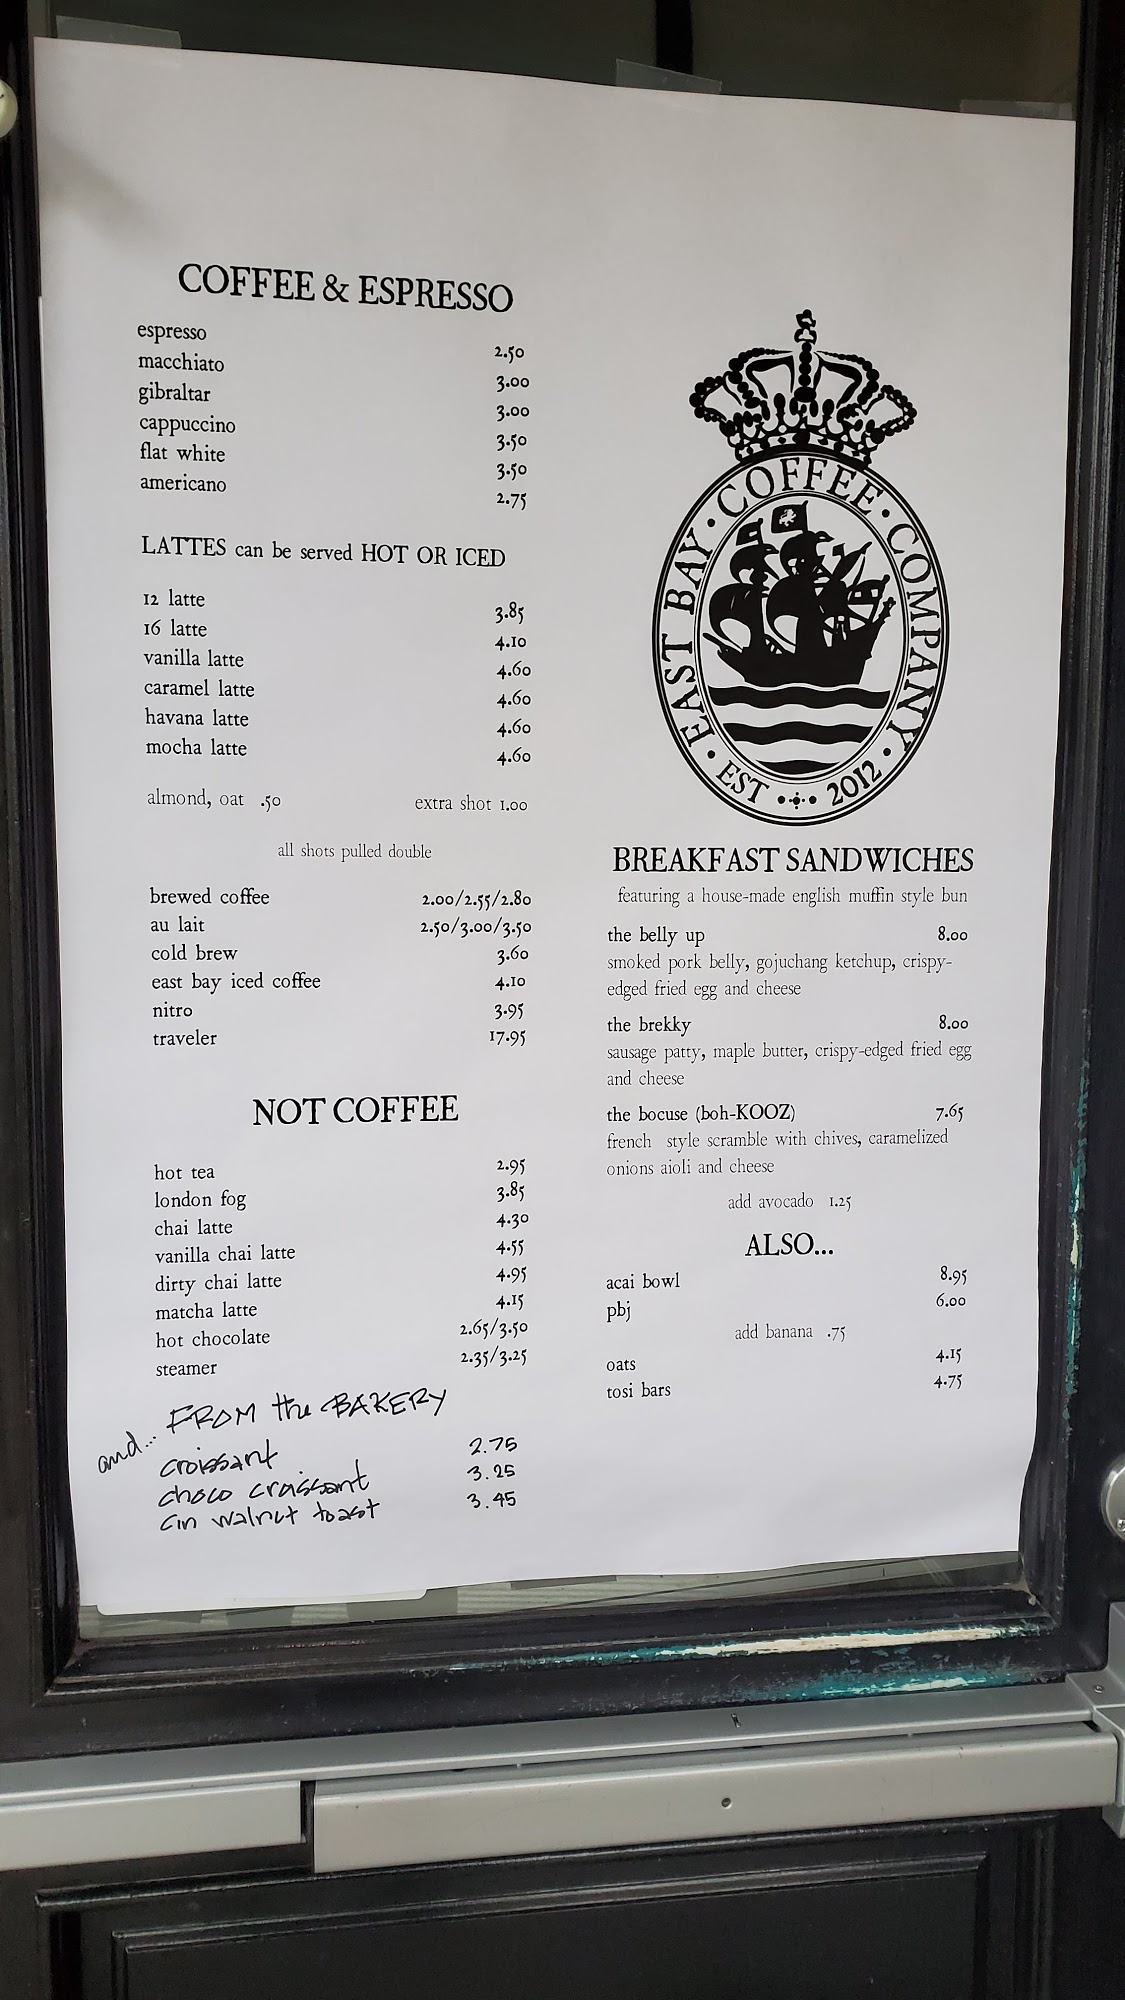 COFFEE & ESPRESSO
espresso 2.50
macchiato 3.00
gibraltar 3.00
cappuccino 3.50
flat white 3.50
americano 2.75
LATTES can be served HOT OR ICED
12 latte 3.85
16 latte 4.10
vanilla latte 4.60
caramel latte 4.60
havana latte 4.60
mocha latte 4.60
almond, oat .50 extra shot 1.00
all shots pulled double
brewed coffee 2.00/2.55/2.80
au lait 2.50/3.00/3.50
cold brew 3.60
east bay iced coffee 4.10
nitro 3.95
traveler 17.95
NOT COFFEE
hot tea 2.95
london fog 3.85
chai latte 4.30
vanilla chai latte 4.55
dirty chai latte 4.95
matcha latte 4.15
hot chocolate 2.65/3.50
steamer 2.35/3.25
and... FROM the BAKERY
croissant 2.75
choco croissant 3.25
cin walnut toast 3.45
EAST BAY · COFFEE · COMPANY
EST 2012
BREAKFAST SANDWICHES
featuring a house-made english muffin style bun
the belly up 8.00
smoked pork belly, gojuchang ketchup, crispy-
edged fried egg and cheese
the brekky 8.00
sausage patty, maple butter, crispy-edged fried egg
and cheese
the bocuse (boh-KOOZ) 7.65
french style scramble with chives, caramelized
onions aioli and cheese
add avocado 1.25
ALSO...
acai bowl 8.95
pbj 6.00
add banana .75
oats 4.15
tosi bars 4.75